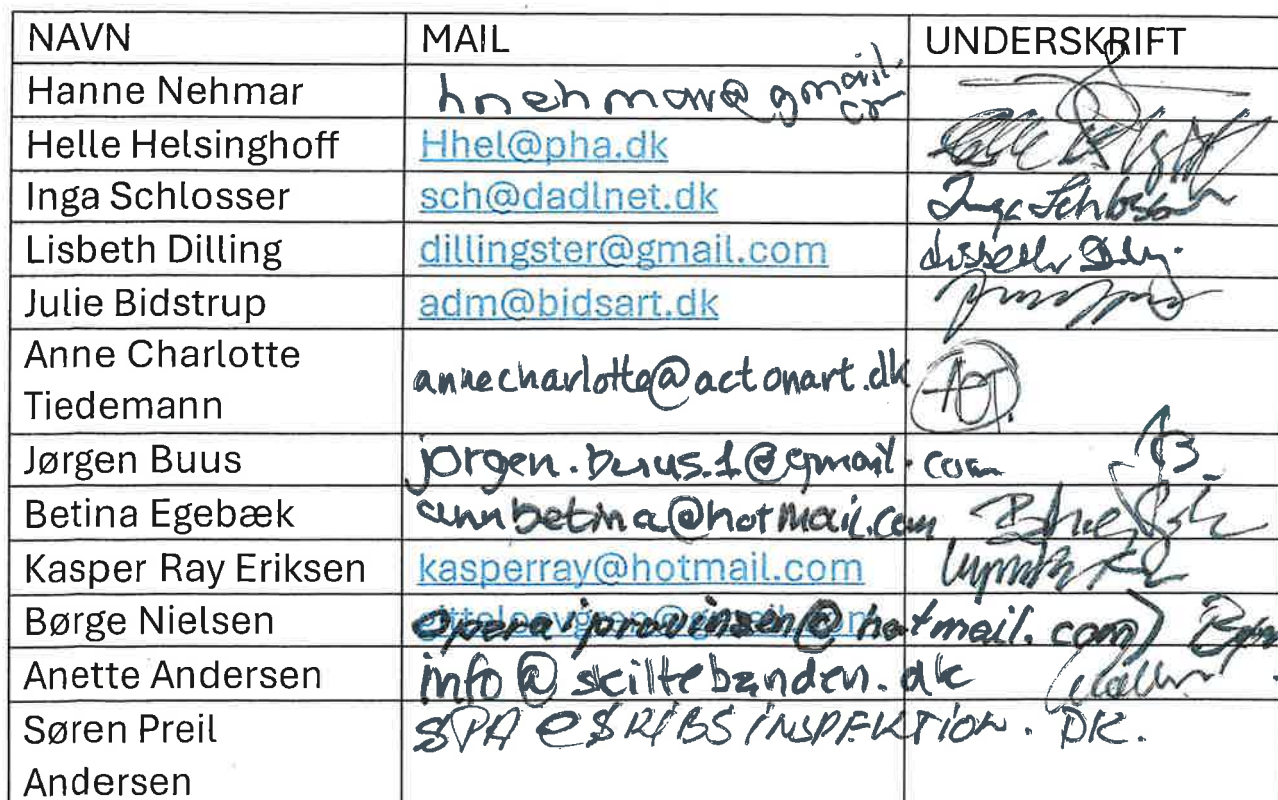 NAVN MAIL UNDERSKRIFT
Hanne Nehmar hnehmar@gmail.
Helle Helsinghoff Hhel@pha.dk
Inga Schlosser sch@dadlnet.dk Inga Schlosser
Lisbeth Dilling dillingster@gmail.com Lisbeth
Julie Bidstrup adm@bidsart.dk
Anne Charlotte
Tiedemann annecharlotte@actonart.dk
Jørgen Buus jorgen.buus.1@gmail.com
Betina Egebæk annbetina@hotmail.com
Kasper Ray Eriksen kasperray@hotmail.com
Børge Nielsen operaiprovinsen@hotmail.com)
Anette Andersen info@skiltebanden.dk
Søren Preil SPA@SKIBSINSPEKTION.DK.
Andersen